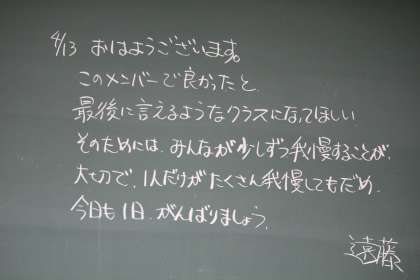 4/13 おはようございます。
このメンバーで良かったと
最後に言えるようなクラスになってほしい
そのためには、みんなが少しずつ我慢することが、
大切で、1人だけがたくさん我慢してもだめ、
今日も1日、がんばりましょう。
遠藤